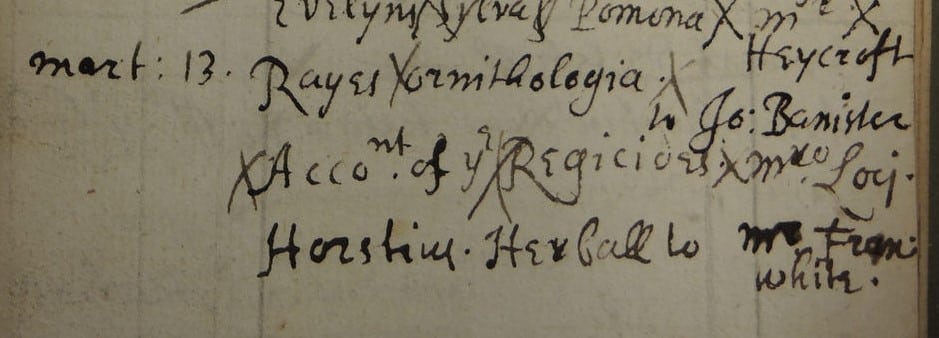 Evelyns Sylva & Pomona X mr X
Heycroft
mart: 13. Rayes ornithologia.
to Jo: Banister
X Accont. of ye Regicides. X mro Loci.
Horstius. Herball to mr Fran:
white.